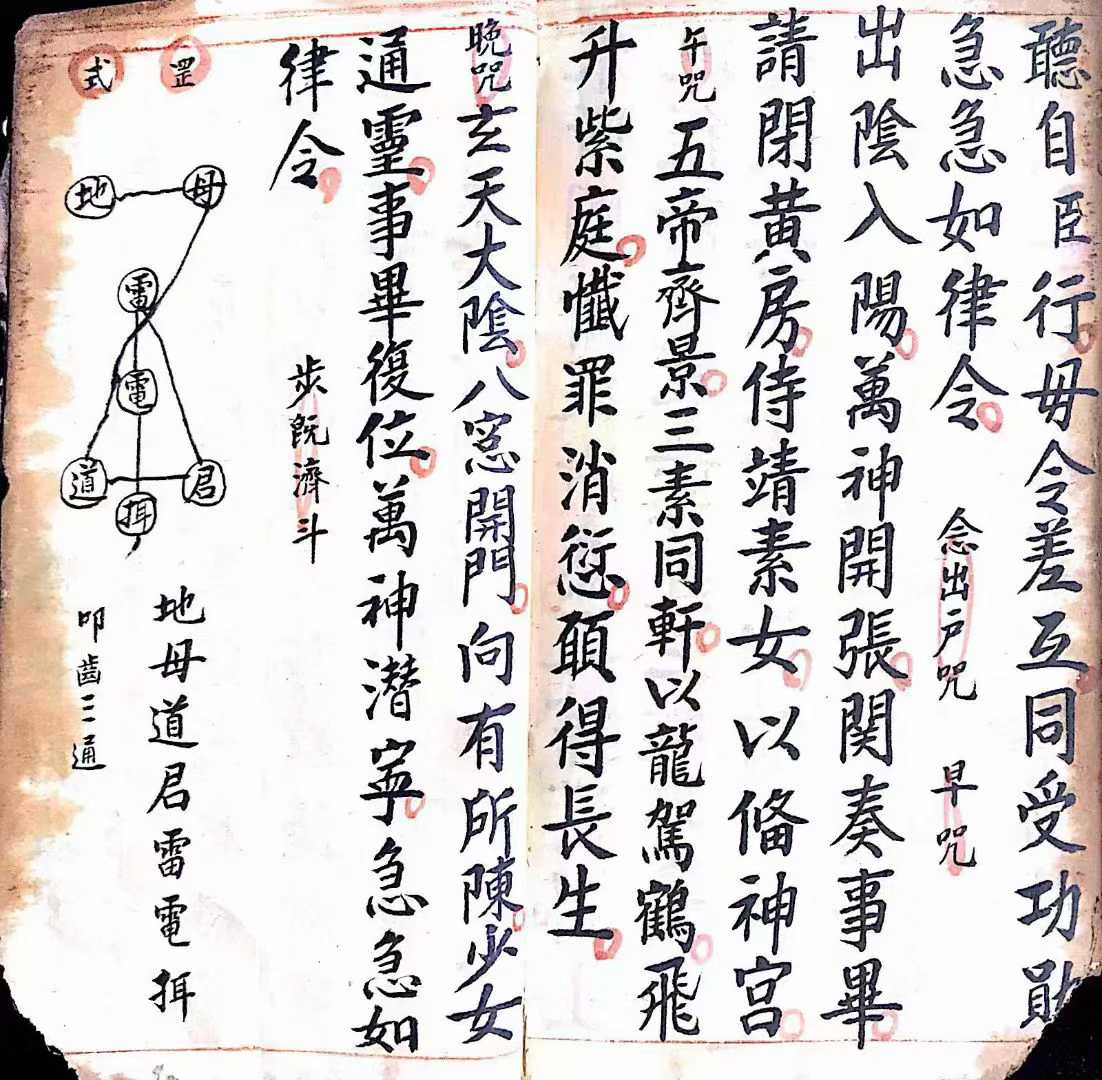 聽自臣行毋令差互同受功勛
急急如律令 念出户咒 早咒
出陰入陽萬神開張関奏事畢
請閉黃房侍靖素女以俻神宫
午咒 五帝齊景三素同軒以龍駕鶴飛
升紫庭懺罪消愆願得長生
晚咒 玄天大陰八窓開門向有所陳少女
通靈事畢復位萬神潜寜急急如
律令 步既濟斗
罡式
母 地
雷
電
君 道
揖
地母道君雷電揖
叩齒三通